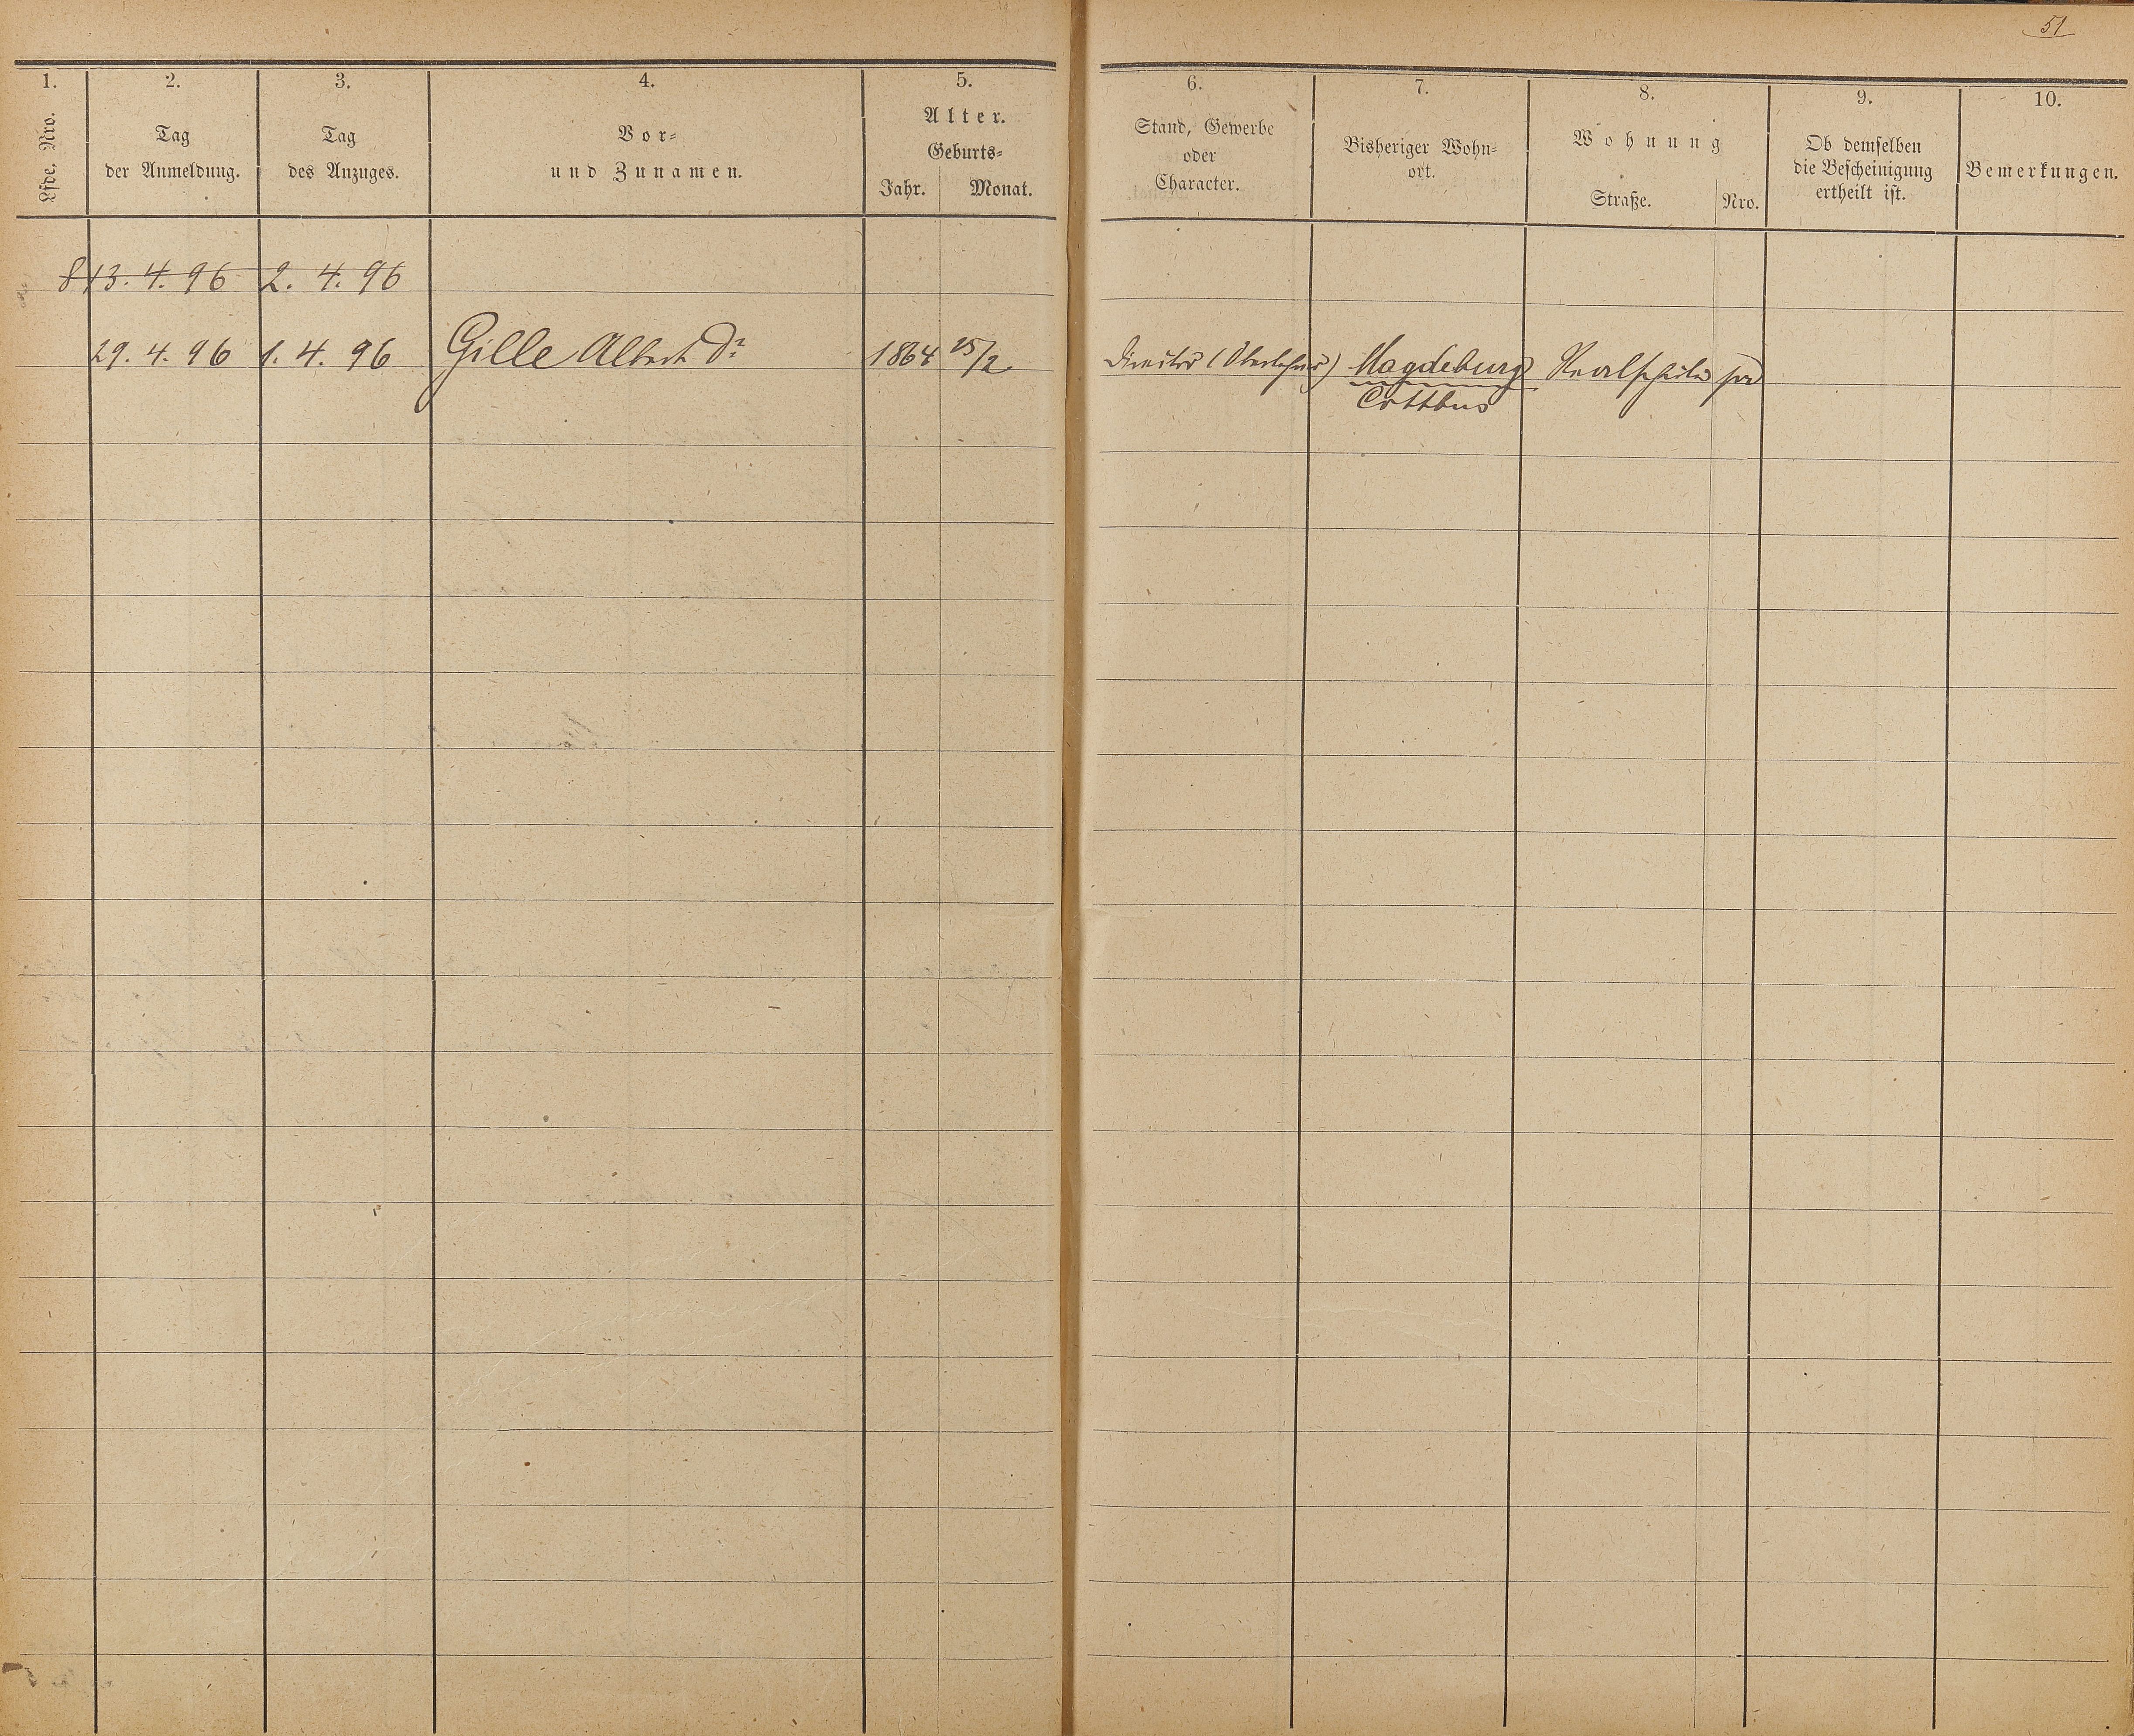 51
1. 2. 3. 4. 5. 6. 7. 8. 9. 10.
Lfde. Nro.
Tag
der Anmeldung.
Tag
des Anzuges.
Vor-
und Zunamen.
Alter.
Geburts-
Jahr. Monat.
Stand, Gewerbe
oder
Character.
Bisheriger Wohn-
ort.
Wohnung
Straße. Nro.
Ob demselben
die Bescheinigung
ertheilt ist.
Bemerkungen.
813. 4. 96 2. 4. 96
29. 4. 96 1. 4. 96 Gille Albert Dr 1864 25/2 Director (Oberlehrer) Magdeburg Realschule
Cottbus